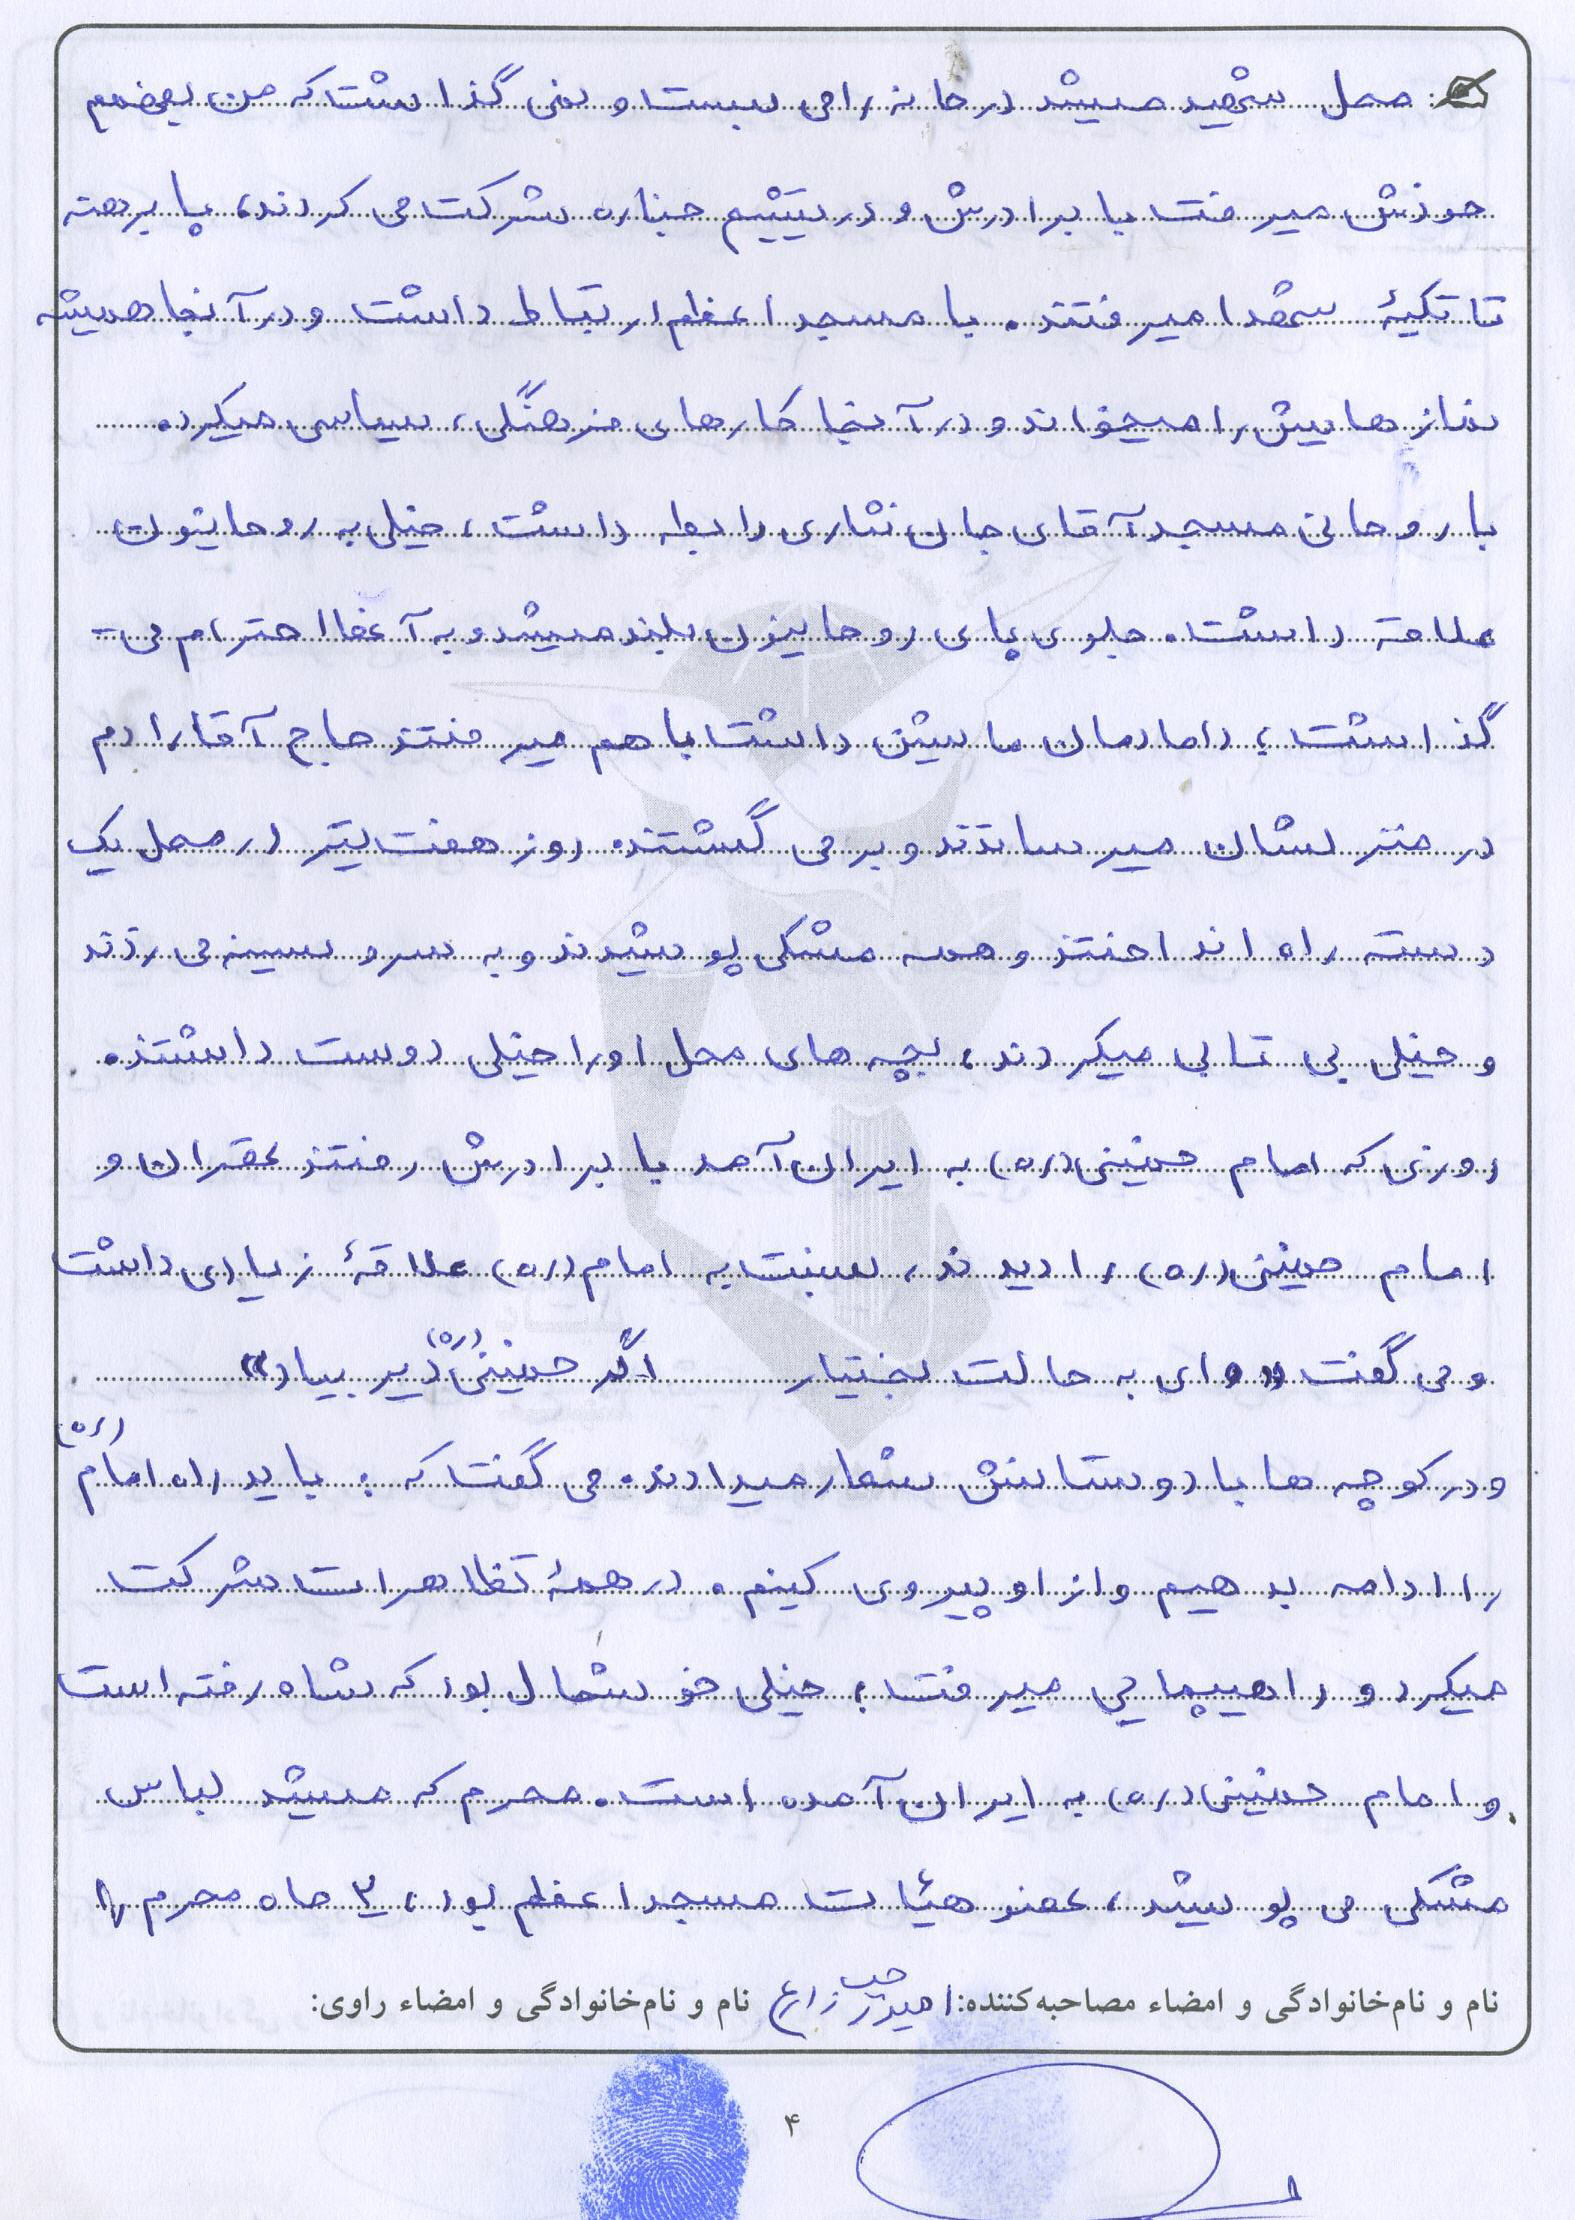 محل شهید میشد در خانه را می بست و نمی گذاشت که من بفهمم
خودش میرفت با برادرش و در تشییع جنازه شرکت می کردند، پا برهنه
تا تکیهٔ شهدا میرفتند. با مسجد اعظم ارتباط داشت و در آنجا همیشه
نمازهایش را میخواند و در آنجا کارهای فرهنگی، سیاسی میکرد.
با روحانی مسجد آقای جان نثاری رابطه داشت، خیلی به روحانیون
علاقه داشت. جلوی پای روحانیون بلند میشد و به آنها احترام می-
گذاشت؛ دامادمان ماشین داشت با هم میرفتند حاج آقا را دم
در منزلشان میرساندند و برمی گشتند. روز هفت تیر در محل یک
دسته راه انداختند و همه مشکی پوشیدند و به سر و سینه می زدند
و خیلی بی تابی میکردند، بچه های محل او را خیلی دوست داشتند.
روزی که امام خمینی(ره) به ایران آمد با برادرش رفتند تهران و
امام خمینی(ره) را دیدند، نسبت به امام(ره) علاقهٔ زیادی داشت
و می گفت «وای به حالت بختیار اگر خمینی(ره) دیر بیاد»
و در کوچه ها با دوستانش شعار میدادند. می گفت که: باید راه امام(ره)
را ادامه بدهیم و از او پیروی کنیم. در همهٔ تظاهرات شرکت
میکرد و راهپیمایی میرفت؛ خیلی خوشحال بود که شاه رفته است
و امام خمینی(ره) به ایران آمده است. محرم که میشد لباس
مشکی می پوشید، عضو هیئات مسجد اعظم بود، ۲ ماه محرم
نام و نام‌خانوادگی و امضاء مصاحبه‌کننده: زارع نام و نام‌خانوادگی و امضاء راوی:
۴